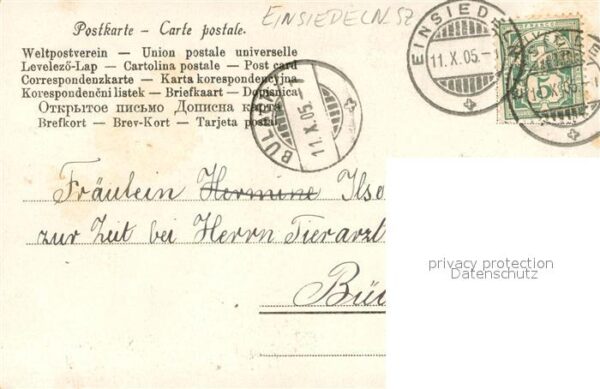 EINSIEDELN SZ
Postkarte – Carte postale.
Weltpostverein — Union postale universelle
Levelező-Lap — Cartolina postale — Post card
Correspondenzkarte — Karta korespondencyjna
Korespondenční listek — Briefkaart — Dopisnica
Открытое письмо Дописна карта
Brefkort — Brev-Kort — Tarjeta postal
EINSIEDE
11.X.05.–
BÜLACH
11.X.05.–
FRANCO
5
Fräulein Hermine Ilse
zur Zeit bei Herrn Tierarzt
Bü
privacy protection
Datenschutz